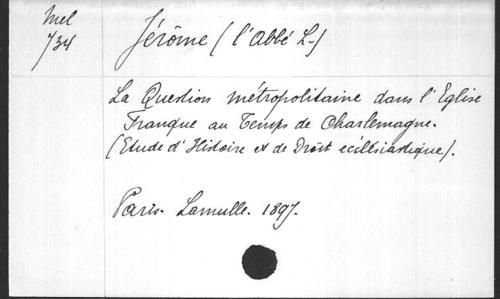 Mel
734
Jérôme (l'Abbé L.)
La Question métropolitaine dans l'Eglise
Franque au Temps de Charlemagne.
(Etude d'Histoire et de Droit ecclésiastique).
Paris. Lamulle. 1897.